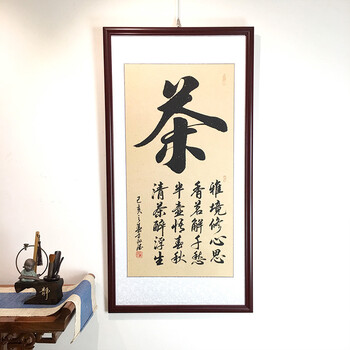 茶
雅境修心思
香茗解千愁
半壶悟春秋
清茶醉浮生
己亥之春
静